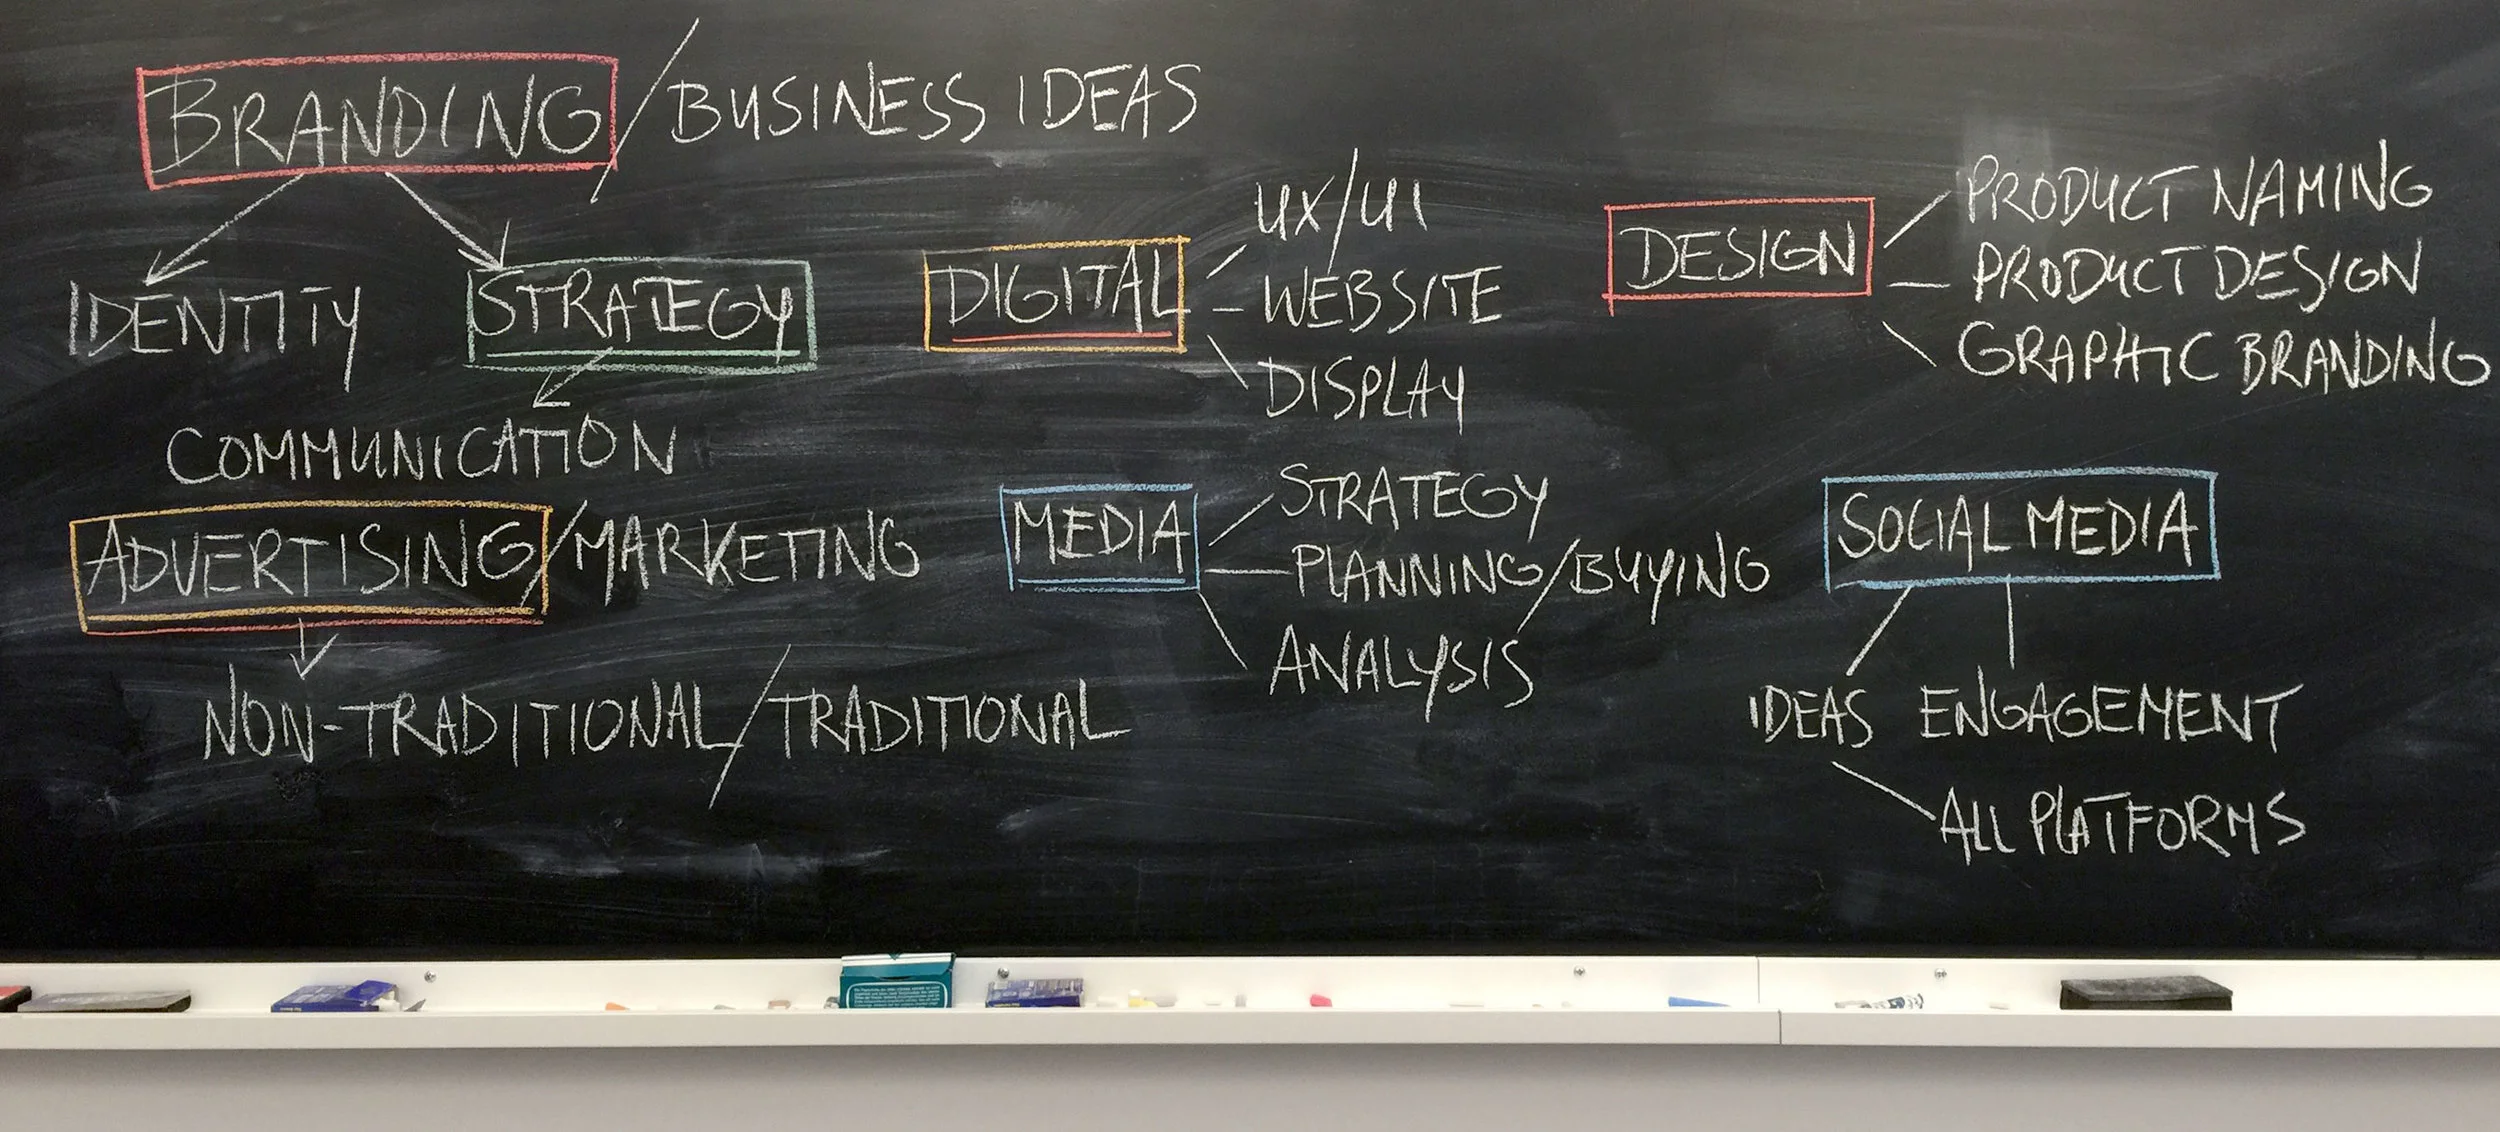 BRANDING / BUSINESS IDEAS
IDENTITY
STRATEGY
COMMUNICATION
ADVERTISING / MARKETING
NON-TRADITIONAL / TRADITIONAL
DIGITAL
UX/UI
WEBSITE
DISPLAY
MEDIA
STRATEGY
PLANNING/BUYING
ANALYSIS
DESIGN
PRODUCT NAMING
PRODUCT DESIGN
GRAPHIC BRANDING
SOCIAL MEDIA
IDEAS ENGAGEMENT
ALL PLATFORMS